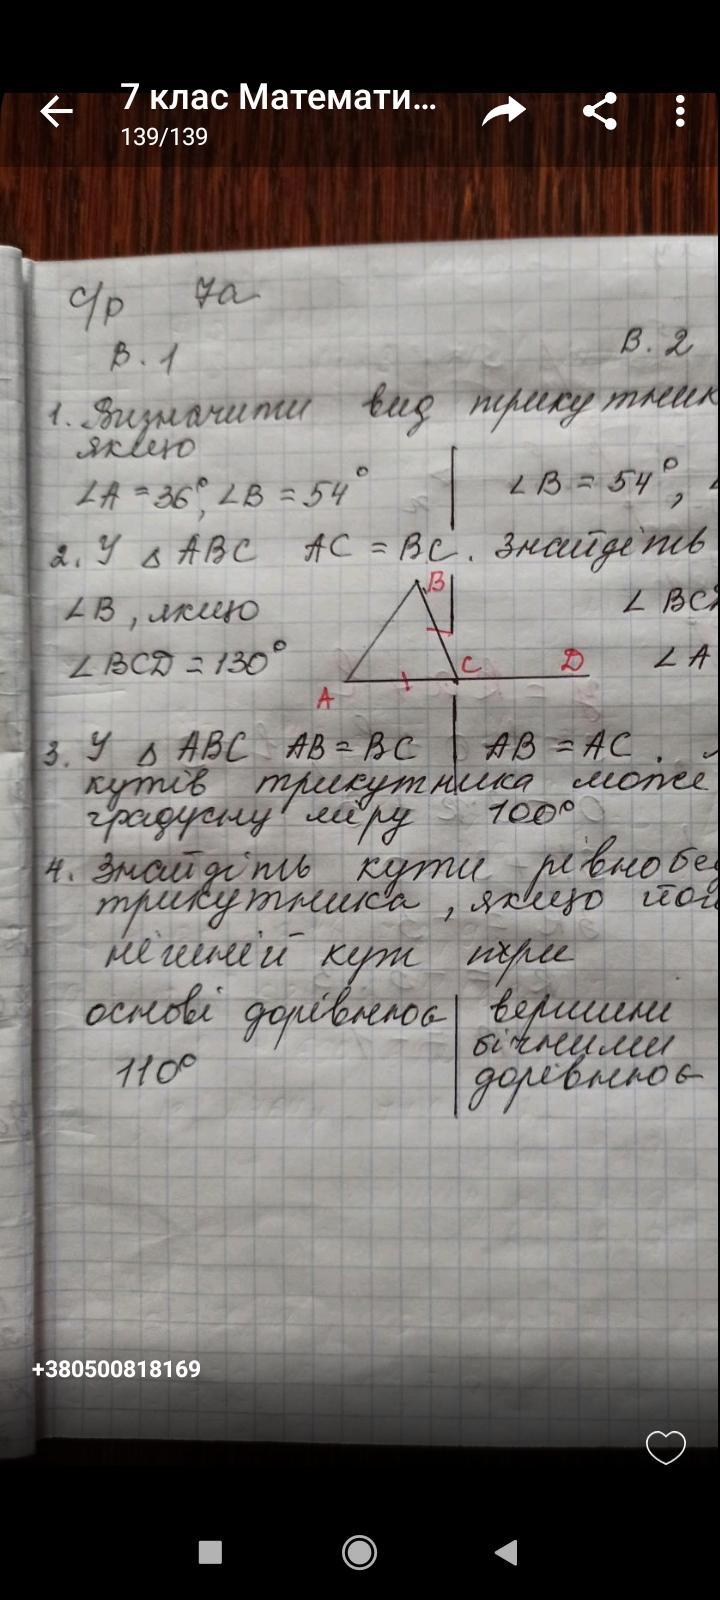 7 клас Математи...
139/139
с/р 7а
В. 1 В. 2
1. Визначити вид трикутник
якщо
∠A = 36°, ∠B = 54° ∠B = 54°,
2. У △ ABC AC = BC. Знайдіть
B
∠B, якщо ∠BCD
∠BCD = 130° ∠A
A C D
3. У △ ABC AB = BC AB = AC.
кутів трикутника може
градусну міру 100°
4. Знайдіть кути рівнобед
трикутника, якщо йог
нішній кут при
основі дорівнює вершині
бічними
110° дорівнює
+380500818169